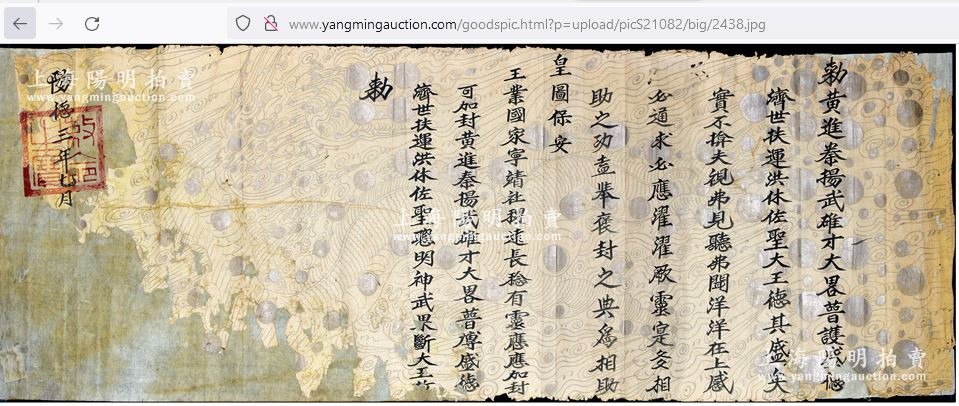 www.yangmingauction.com/goodspic.html?p=upload/picS21082/big/2438.jpg
勅黄進豢揚武雄才大畧普護盛德
濟世扶運洪休佐聖大王德其盛矣
實不揜夫視弗見聽弗聞洋洋在上感
必通求必應濯濯厥靈寔相
助之功盍舉褒封之典爲相助
皇圖保安
王業國家寧靖社稷遠長稔有靈應應加封
可加封黄進豢揚武雄才大畧普博盛德
濟世扶運洪休佐聖聰明神武果斷大王
勅
陽德三年七月
上海陽明拍賣
www.yangmingauction.com
上海陽明拍賣
www.yangmingauction.com
上海陽明拍賣
www.yangmingauction.com